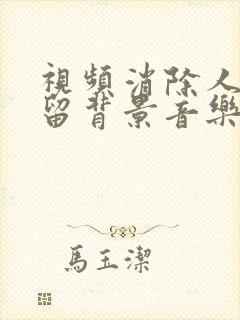 視頻消除人
留背景音樂
馬玉潔